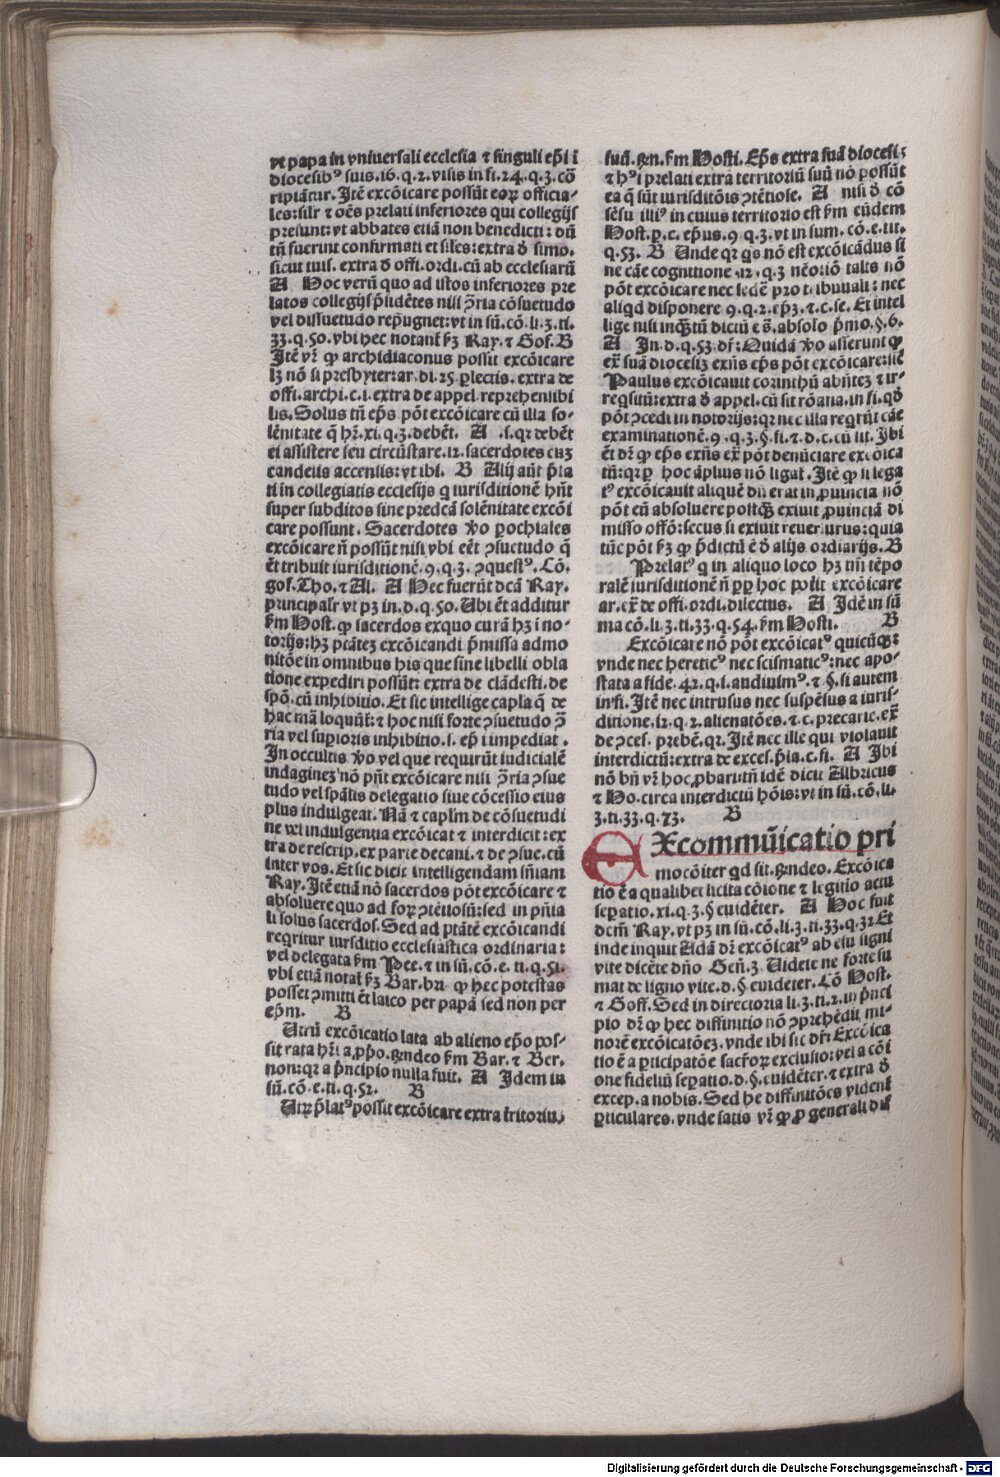 vt papa in vniuersali ecclesia ⁊ singuli ep̄i i
diocesibꝰ suis.16.q.2.visis in fi.24.q.3.cō
ripiātur. Itē excōicare possūt eoꝝ officia-
les: silr ⁊ oēs prelati inferiores qui collegijs
presunt: vt abbates etiā non benedicti: dū
tn̄ fuerint confirmati et siles: extra d̄ simo.
sicut tuis. extra d̄ offi. ordi. cū ab ecclesiarū
A Hoc verū quo ad istos inferiores pre
latos collegijs p̄sidētes nisi ꝯ̄ria cōsuetudo
vel dissuetudo repugnet: vt in sū. cō. li.3. ti.
33.q.50. vbi hec notant̄ ẜm Ray. ⁊ Gof. B
Itē vr̄ ꝙ archidiaconus possit excōicare
lꝫ nō si presbyter: ar. di.25. ꝑlectis. extra de
offi. archi. c.i. extra de appel. reprehensibi
lis. Solus tn̄ ep̄s pōt excōicare cū illa so-
lēnitate q̄ hr̄.xi.q.3. debēt. A .s. qr debēt
ei assistere seu circūstare.12. sacerdotes cuꝫ
candelis accensis: vt ibi. B Alij aūt p̄la
ti in collegiatis ecclesijs q̄ iurisditionē hn̄t
super subditos sine predcā solēnitate excōi
care possunt. Sacerdotes ꝟo ꝑochiales
excōicare n̄ possūt nisi vbi eēt ꝯsuetudo q̄
ēt tribuit iurisditionē.9.q.3. ꝯquestꝰ. Cō.
gof. Tho. ⁊ Al. A Hec fuerūt dcā Ray.
principalr̄ vt pꝫ in.d.q.50. Ubi ēt additur
ẜm Host. ꝙ sacerdos exquo curā hꝫ i no-
torijs: hꝫ ptāteꝫ excōicandi p̄missa admo
nitōe in omnibus his que sine libelli obla
tione expediri possūt: extra de clādesti. de
spō. cū inhibitio. Et sic intellige capla q̄ de
hac mā loquūt̄: ⁊ hoc nisi forte ꝯsuetudo ꝯ̄
ria vel suꝑioris inhibitio.s. ep̄i impediat.
In occultis ꝟo vel que requirūt iudicialē
indagineꝫ nō pn̄t excōicare nisi ꝯ̄ria ꝯsue
tudo vel sp̄alis delegatio siue cōcessio eius
plus indulgeat. Nā ⁊ caplm de cōsuetudi
ne vel indulgentia excōicat ⁊ interdicit: ex
tra de rescrip. ex parte decani. ⁊ de ꝯsue. cū
inter vos. Et sic dicit intelligendam sn̄iam
Ray. Itē etiā nō sacerdos pōt excōicare ⁊
absoluere quo ad foꝝ ꝯtētiosū: sed in pn̄ia
li solus sacerdos. Sed ad ptātē excōicandi
reqritur iursditio ecclesiastica ordinaria:
vel delegata ẜm Pet. ⁊ in sū. cō. e. ti. q.51.
vbi etiā notat̄ ẜm Bar. bri. ꝙ hec potestas
posset ꝯmitti ēt laico per papā sed non per
ep̄m. B
Utrū excōicatio lata ab alieno ep̄o pos-
sit rata hr̄i a ꝓp̄o. Rn̄deo ẜm Bar. ⁊ Ber.
non: qr a p̄ncipio nulla fuit. A Idem in
sū. cō. e. ti. q.52. B
Utꝝ p̄latꝰ possit excōicare extra t̄ritoriū
suū. Rn̄. ẜm Hosti. Ep̄s extra suā diocesiꝫ
⁊ hꝰi prelati extra territoriū suū nō possūt
ea q̄ sūt iurisditōis ꝯtētiose. A nisi d̄ cō
sēsu illiꝰ in cuius territorio est ẜm eūdem
Host. ꝑ.c. ep̄us.9.q.3. vt in sum. cō. e. tit.
q.53. B Unde qr qs nō est excōicādus si
ne cāe cognitione.12.q.3 nēo: iō talis nō
pōt excōicare nec sedē pro tribunali: nec
aliqd disponere 9.q.2. ep̄ꝫ. ⁊.c. se. Et intel
lige nisi inqꝫtū dictū ē s̄. absolo p̄mo.§.6.
A In.d.q.53 dr̄: Quidā ꝟo asserunt ꝙ
ex̄ suā diocesiꝫ exn̄s ep̄s pōt excōicare: sic
Paulus excōicauit corinthū abn̄teꝫ ⁊ ir-
reqsitū: extra d̄ appel. cū sit rōana. in fi. qd̄
pōt ꝓcedi in notorijs: qr nec illa reqrūt cāe
examinationē.9.q.3.§.fi. ⁊.d.c. cū sit. Ibi
ēt dr̄ ꝙ ep̄s exn̄s ex̄ pōt denūciare excōica
tū: qr ꝑ hoc aplius nō ligat̄. Itē ꝙ si lega
tꝰ excōicauit aliquē dū erat in ꝓuincia nō
pōt eū absoluere postqꝫ exiuit ꝓuinciā di
misso offō: secus si exiuit reuersurus: quia
tūc pōt ẜm ꝙ p̄dictū ē d̄ alijs ordiarijs. B
Prelatꝰ q̄ in aliquo loco hꝫ tm̄ tēpo
ralē iurisditionē n̄ ꝓp̄ hoc potit excōicare
ar. ex̄ de offi. ordi. dilectus. A Idē in sū
ma cō. li.3. ti.33.q.54. ẜm Hosti. B
Excōicare nō pōt excōicatꝰ quicūqꝫ:
vnde nec hereticꝰ nec scismaticꝰ: nec apo-
stata a fide.42.q.i. audiuimꝰ. ⁊ §. si autem
in fi. Itē nec intrusus nec suspēsus a iuris-
ditione.12.q.2. alienatōes. ⁊.c. precarie. ex̄
de ꝯces. prebē. qr. Itē nec ille qui violauit
interdictū: extra de exces. p̄la. c. fi. A Ibi
nō bn̄ vr̄ hoc ꝓbari: tn̄ idē dicit Albricus
⁊ Ho. circa interdictū hōis: vt in sū. cō. li.
3. ti.33.q.73. B
EXcommūicatio pri
mo cōiter qd sit. Rn̄deo. Excōica
tio ē a qualibet licita cōione ⁊ legitio actu
seꝑatio. xi.q.3.§ euidēter. A Hoc fuit
dcm̄ Ray. vt pꝫ in sū. cō. li.3. ti.33.q.32 Et
inde inquit Adā dr̄ excōicatꝰ ab esu ligni
vite dicēte dn̄o Gen̄.3. Uidete ne forte su
mat de ligno vite.d.§ euidēter. Cō Host.
⁊ Goff. Sed in directoria li.3. ti.2. in p̄nci
pio dr̄ ꝙ hec diffinitio nō ꝯprehēdit mi-
norē excōicatōeꝫ. vnde ibi sic dr̄: Excōica
tio ē a ꝑticipatōe sacr̄oꝝ exclusio: vel a cōi
one fideliū seꝑatio.d.§. euidēter. ⁊ extra d̄
excep. a nobis. Sed he diffinitōes vident̄
ꝑticulares. vnde satis vr̄ ꝙ ꝓ generali dif
Digitalisierung gefördert durch die Deutsche Forschungsgemeinschaft - DFG